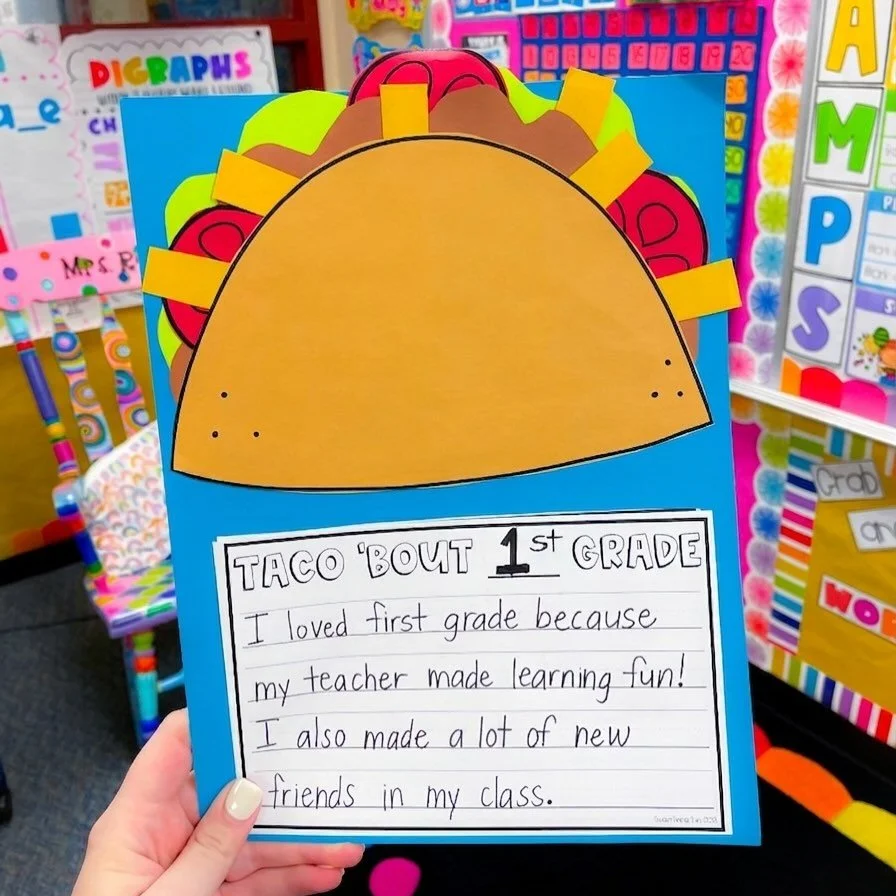 DIGRAPHS
CH
a_e
MRS. R
A
M
P
S
20
TACO 'BOUT 1st GRADE
I loved first grade because
my teacher made learning fun!
I also made a lot of new
friends in my class.
Grab
WOR